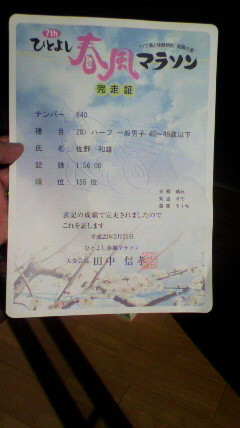 7th
ひとよし春風マラソン
完走証
ナンバー 640
種目 28) ハーフ 一般男子 40~49歳以下
氏名 佐野 和雄
記録 1:56:00
順位 155位
天候 晴れ
気温 9℃
湿度 51%
表記の成績で完走されましたので
これを証します
平成22年2月21日
ひとよし春風マラソン
大会会長 田中信孝